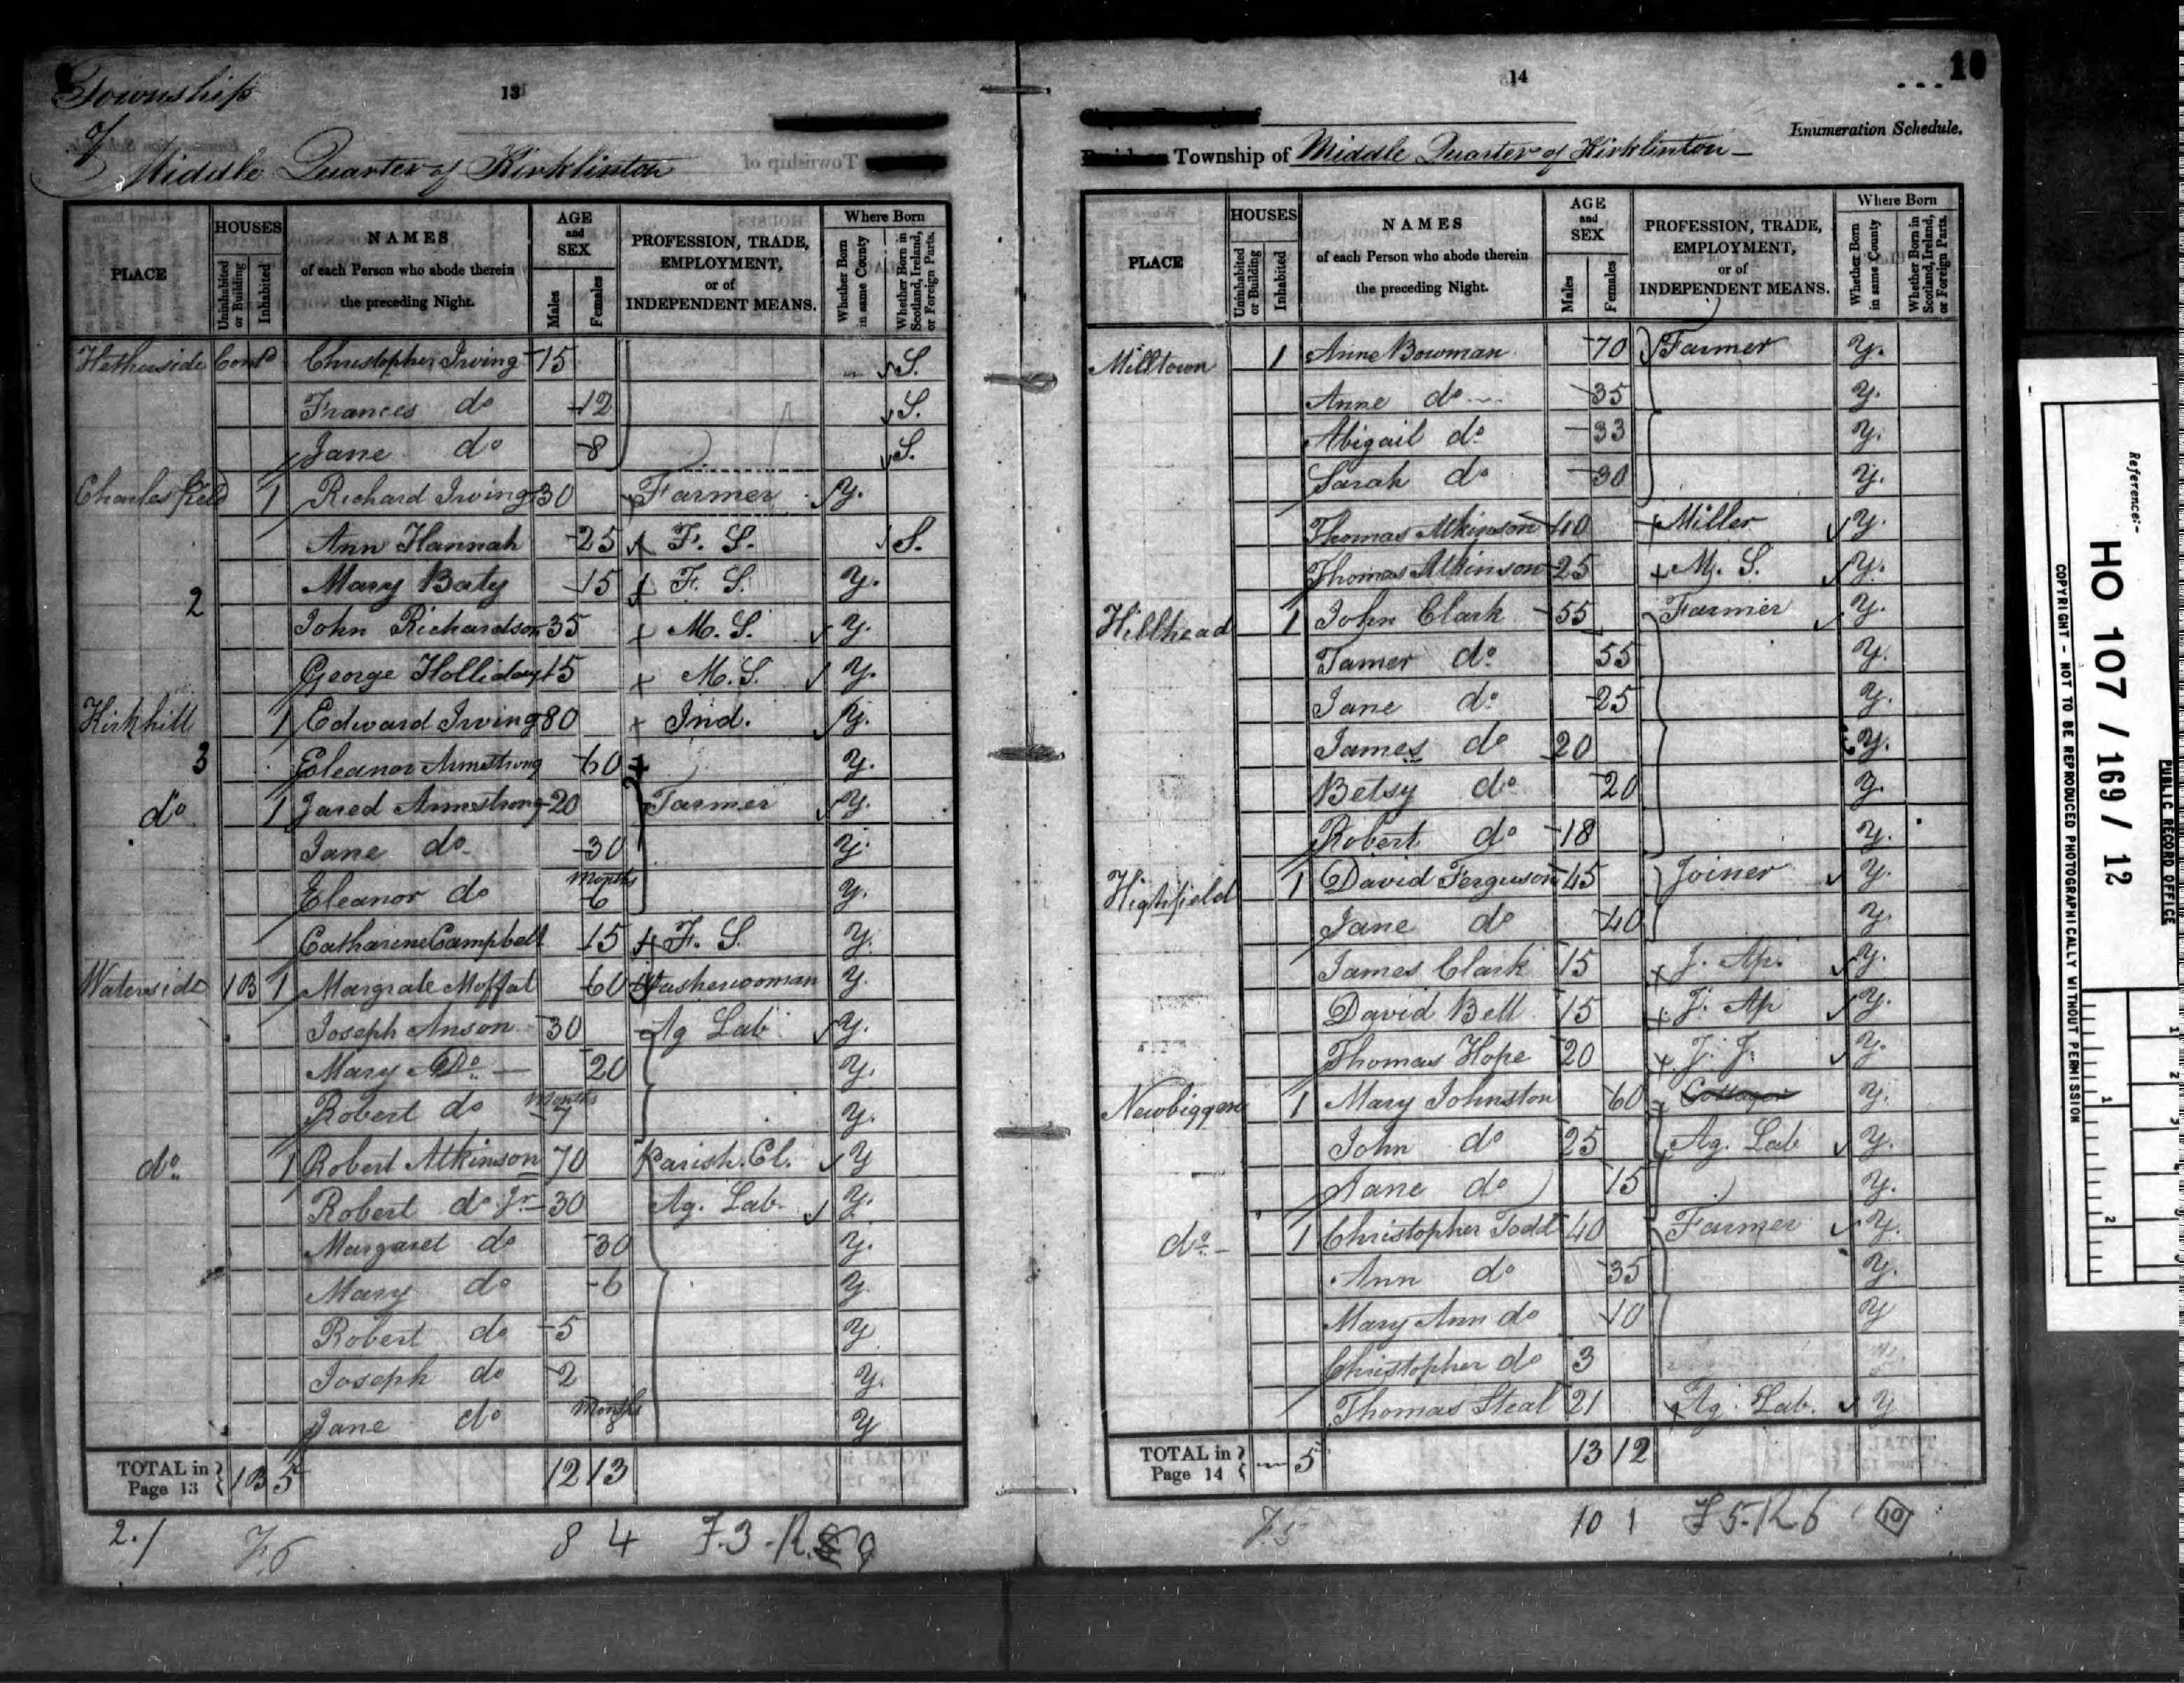 Township
of
Middle Quarter of Kirklinton
13
PLACE
HOUSES
Uninhabited or Building
Inhabited
NAMES
of each Person who abode therein
the preceding Night.
AGE
and
SEX
Males
Females
PROFESSION, TRADE,
EMPLOYMENT,
or of
INDEPENDENT MEANS.
Where Born
Whether Born in same County
Whether Born in Scotland, Ireland, or Foreign Parts.
Hetherside Contd Christopher Irving 15 S.
Frances do 12 S.
Jane do 8 S.
Charlesfield 1 Richard Irving 30 Farmer y.
Ann Hannah 25 F. S. S.
Mary Baty 15 F. S. y.
2
John Richardson 35 M. S. y.
George Holliday 15 M. S. y.
Kirkhill 1 Edward Irving 80 Ind. y.
3 Eleanor Armstrong 60 y.
do 1 Jared Armstrong 20 Farmer y.
Jane do 30 y.
Eleanor do Months 6 y.
Catharine Campbell 15 F. S. y.
Waterside 1B 1 Margrate Moffat 60 Washerwoman y.
Joseph Anson 30 Ag Lab y.
Mary Do 20 y.
Robert do Months 7 y.
do 1 Robert Atkinson 70 Parish. Cl. y
Robert do Jr 30 Ag. Lab y.
Margaret do 30 y.
Mary do 6 y.
Robert do 5 y
Joseph do 2 y.
Jane do Months 8 y
TOTAL in Page 13 1B 5 12 13
2.1 8 4 F.3-R. 9
14
10
Enumeration Schedule.
Township of Middle Quarter of Kirklinton
PLACE
HOUSES
Uninhabited or Building
Inhabited
NAMES
of each Person who abode therein
the preceding Night.
AGE
and
SEX
Males
Females
PROFESSION, TRADE,
EMPLOYMENT,
or of
INDEPENDENT MEANS.
Where Born
Whether Born in same County
Whether Born in Scotland, Ireland, or Foreign Parts.
Milltown 1 Anne Bowman 70 Farmer y.
Anne do 35 y.
Abigail do 33 y.
Sarah do 30 y.
Thomas Atkinson 40 Miller y.
Thomas Atkinson 25 M. S. y.
Hillhead 1 John Clark 55 Farmer y.
Tamer do 55 y.
Jane do 25 y.
James do 20 y.
Betsy do 20 y.
Robert do 18 y.
Highfield 1 David Ferguson 45 Joiner y.
Jane do 40 y.
James Clark 15 J. Ap. y.
David Bell 15 J. Ap y.
Thomas Hope 20 J. J. y.
Newbiggen 1 Mary Johnston 60 Cottager y.
John do 25 Ag. Lab y.
Jane do 15 y.
do 1 Christopher Todd 40 Farmer y.
Ann do 35 y.
Mary Ann do 10 y
Christopher do 3 y.
Thomas Steal 21 Ag. Lab. y
TOTAL in Page 14 5 13 12
10 1 F5-R6 10
Reference:-
HO 107 / 169 / 12
PUBLIC RECORD OFFICE
COPYRIGHT - NOT TO BE REPRODUCED PHOTOGRAPHICALLY WITHOUT PERMISSION
1
2